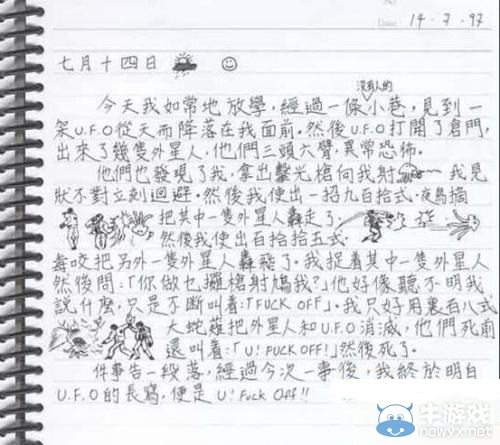 Date: 14-7-97
七月十四日
今天我如常地放學，經過一條沒有人的小巷，見到一
架U.F.O從天而降落在我面前。然後U.F.O打開了倉門，
出來了幾隻外星人，他們三頭六臂，異常恐怖。
他們也發現了我，拿出擊光槍向我射 我見
狀不對立刻迴避。然後我使出一招九百拾式．夜鳥摘
把其中一隻外星人轟走了，
然後我使出百拾拾五式．
毒咬把另外一隻外星人轟飛了。我捉着其中一隻外星人
然後問：「你做乜攞槍射鳩我？」他好像聽不明我
說什麼，只是不斷叫着：「FUCK OFF」。我只好用裏百八式
大蛇薙把外星人和U.F.O消滅，他們死前
還叫着：「U! FUCK OFF!」然後死了。
件事告一段落，經過今次一事後，我終於明白
U.F.O的長寫，便是 U! Fuck Off!!
牛游戏
newyx.net